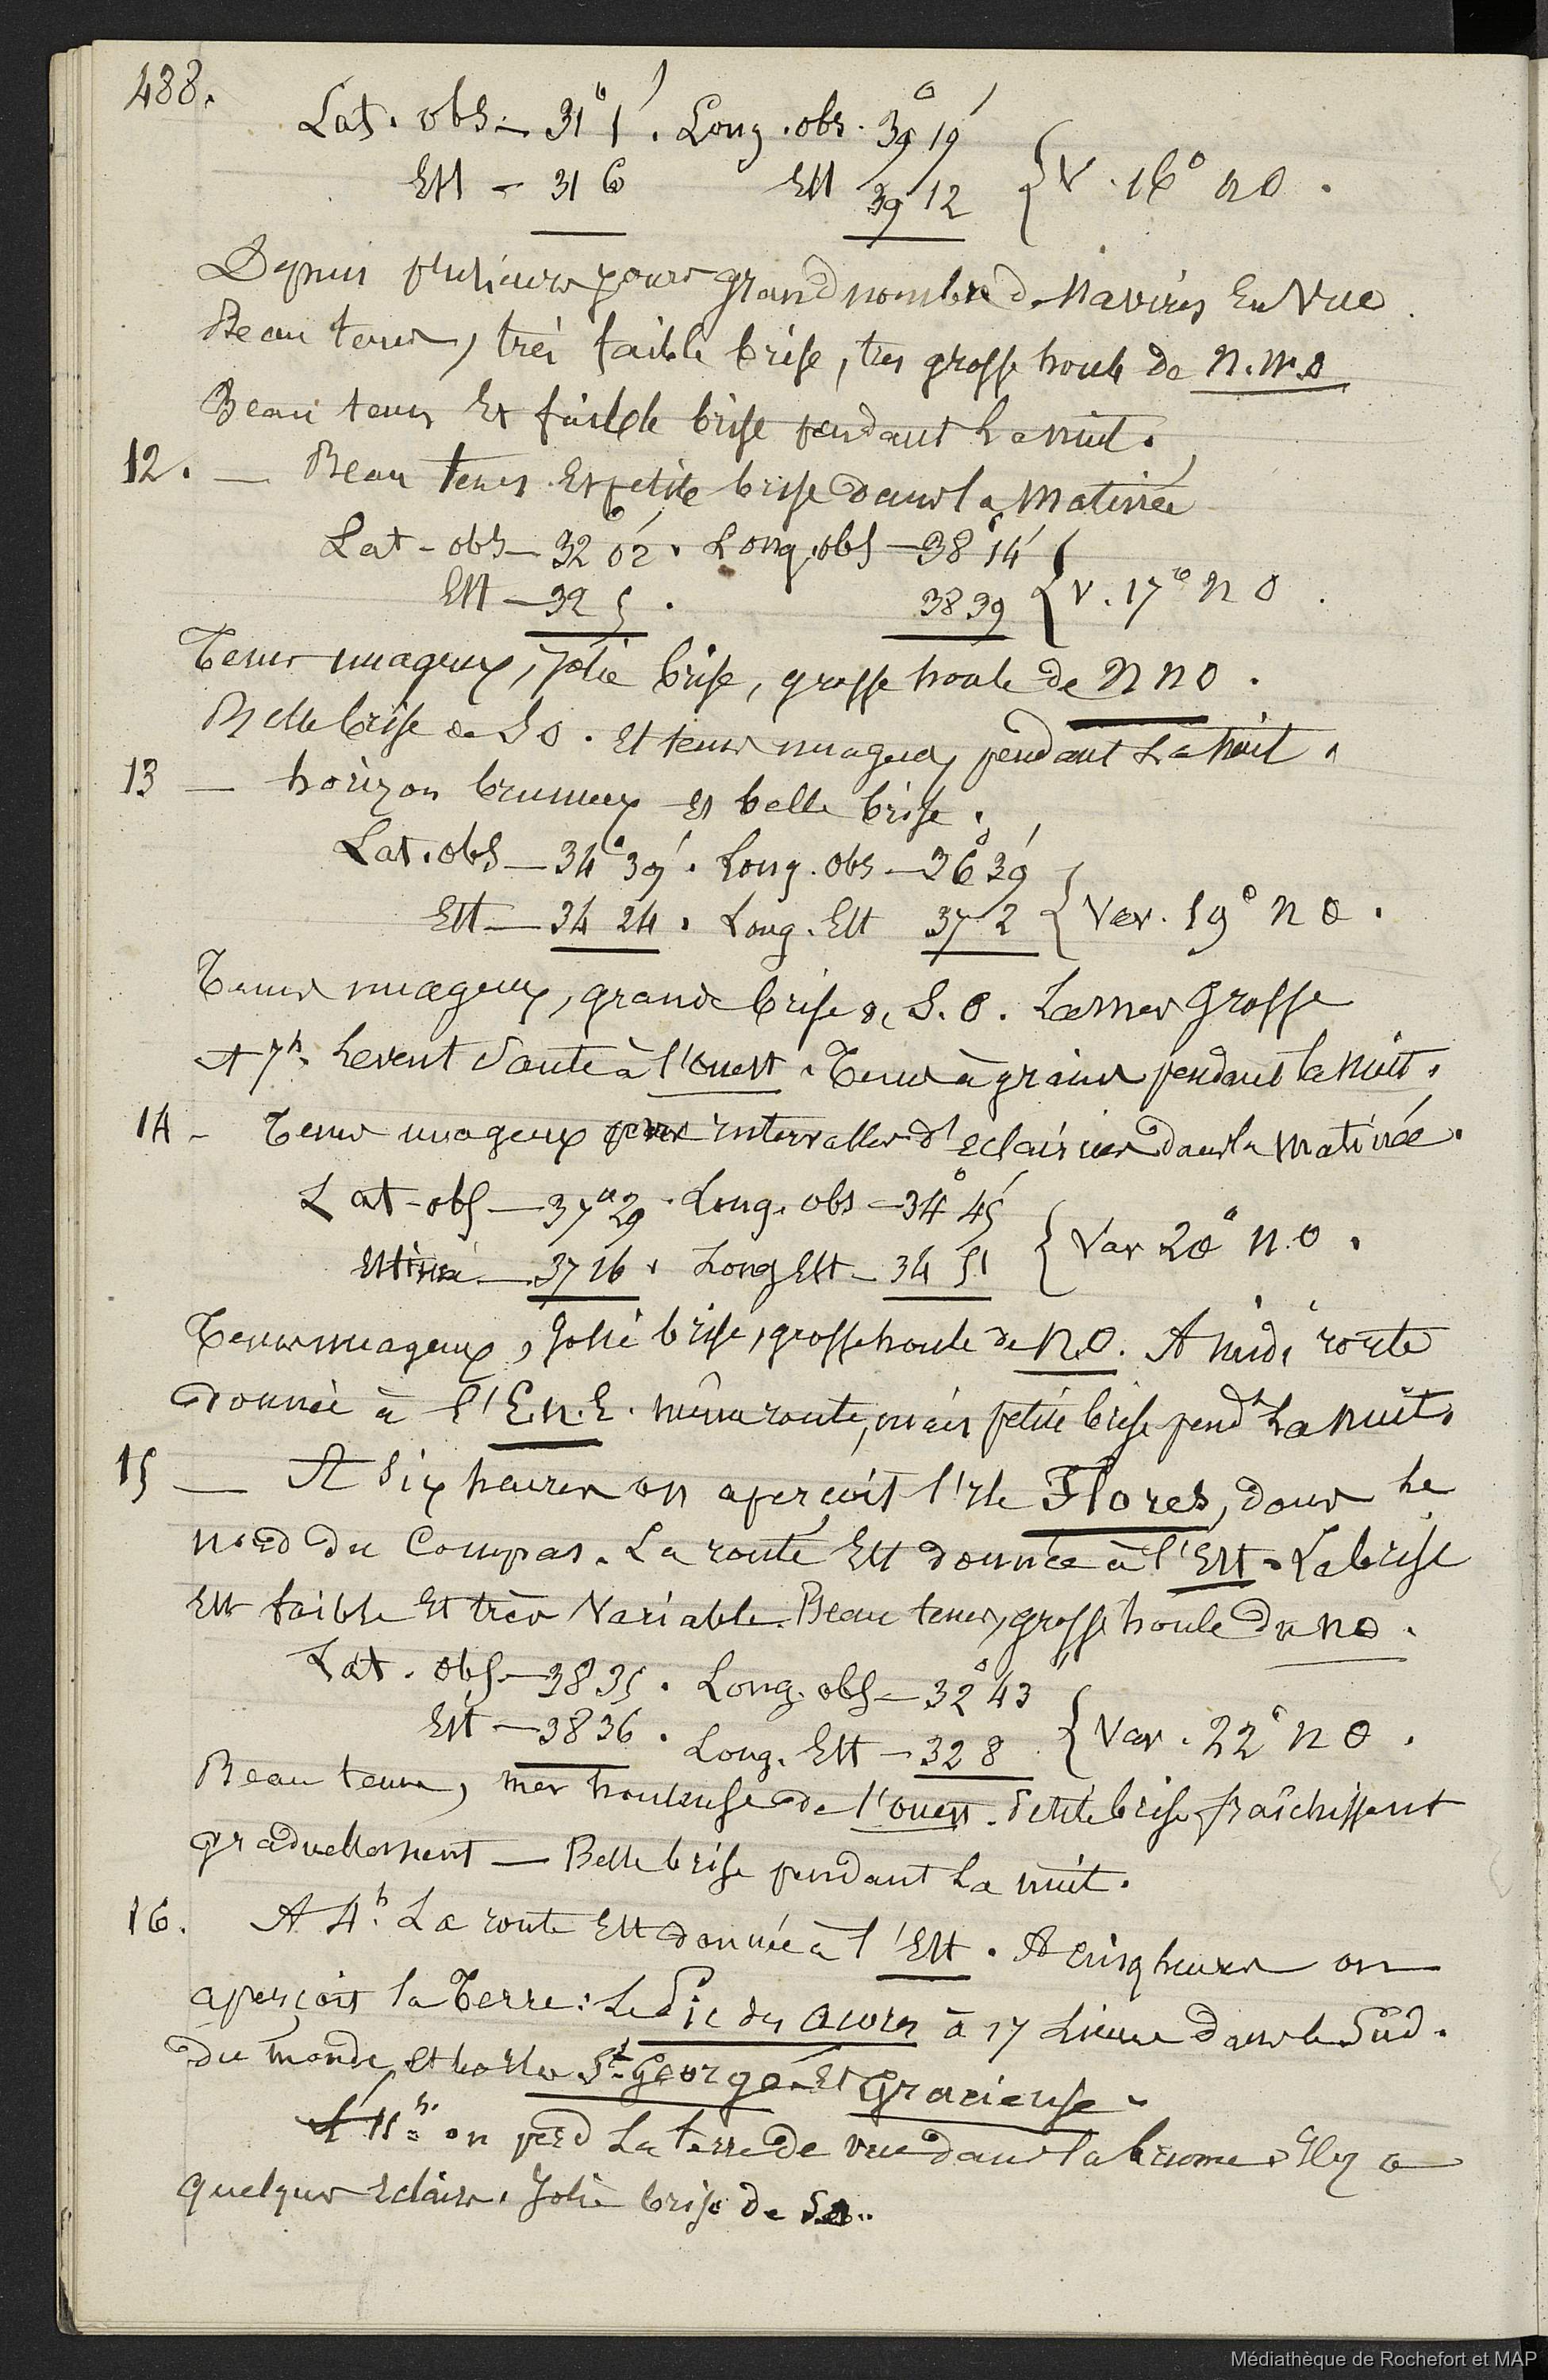 488.
Lat. obs. — 31° 1'. Long. obs. 39° 19'
Est — 31 6 Est 39 12 { V. 16° n O.
Depuis plusieurs jours grand nombre de Navires En Vue.
Beau tems, très faible brise, très grosse houle de N.N.O
Beau tems Et faible brise pendant La nuit.
12. — Beau tems Et petite brise dans la Matinée
Lat - obs — 32° 02'. Long. obs — 38° 14'
Est — 32 5. 38 39 { V. 17° N O.
Tems nuageux, Jolie brise, grosse houle de N N O.
Belle brise de S O. Et tems nuageux pendant La Nuit.
13 — horizon brumeux et belle brise.
Lat. obs — 34° 39'. Long. Obs — 36° 39'
Est — 34 24. Long. Est 37 2 { Var. 19° N O.
Tems nuageux, grande brise de S. O. La mer Grosse
At 7h. Le vent Saute à l'Ouest. Tems à grains pendant la Nuit.
14 - Tems nuageux par intervalles d'eclaircies dans la Matinée.
Lat - obs — 37° 29. Long. obs — 34° 45'
Estimée — 37 16. Long Est — 34 51 { Var 20° N.O.
Tems nuageux, Jolie brise, grosse houle de N.O. A midi route
donnée à l'E.N.E. même route, mais petite brise pendt La nuit.
15 — A Six heures on aperçoit l'Ile Flores, dans Le
Nord du Compas. La route Est donnée à l'Est. La brise
Est faible Et très Variable. Beau tems, grosse houle du NO.
Lat. obs — 38 35. Long. obs — 32° 43'
Est — 38 36. Long. Est — 32 8 { Var. 22° N O.
Beau tems, mer houleuse de l'ouest. Petite brise fraîchissant
graduellement — Belle brise pendant La nuit.
16. A 4h. La route Est donnée à l'Est. A cinq heures on
aperçoit la Terre: Le Pic des Acores à 17 Lieues dans le Sud.
du monde, Et les Iles St. George Et Gracieuse.
A 11h. on perd La terre de vue dans la brume. Il y a
quelques Eclairs. Jolie brise de SO.
Médiathèque de Rochefort et MAP